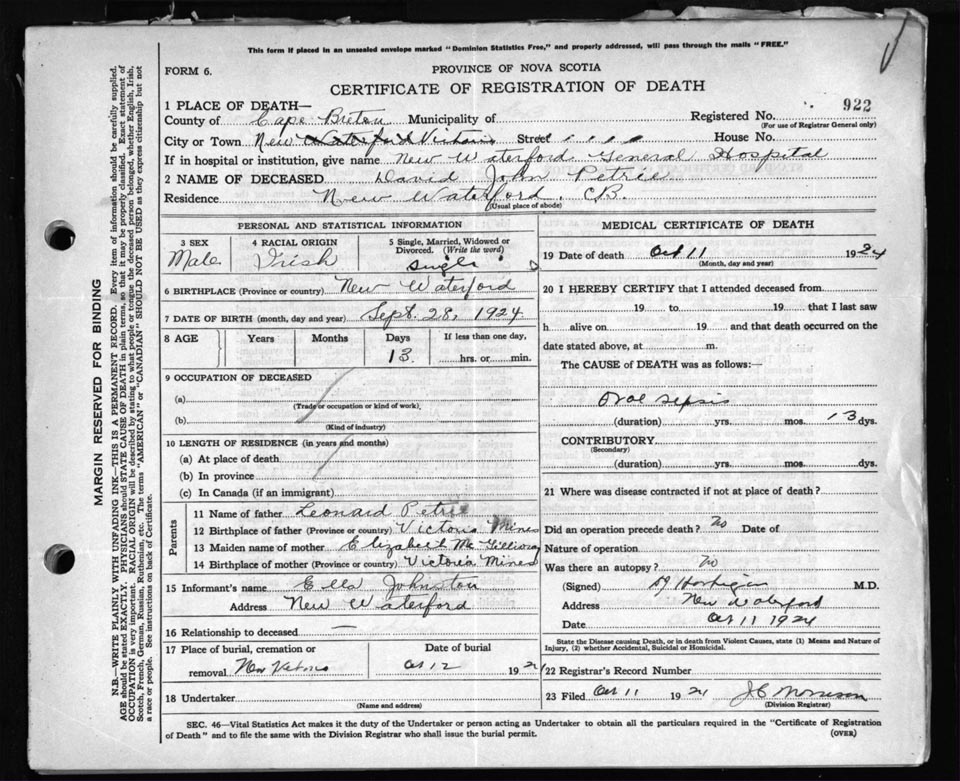 This form if placed in an unsealed envelope marked "Dominion Statistics Free," and properly addressed, will pass through the mails "FREE."
FORM 6.
PROVINCE OF NOVA SCOTIA
CERTIFICATE OF REGISTRATION OF DEATH
922
1 PLACE OF DEATH—
County of Cape Breton Municipality of Registered No.
(For use of Registrar General only)
City or Town New Waterford Victoria Street House No.
If in hospital or institution, give name New Waterford General Hospital
2 NAME OF DECEASED David John Petrie
Residence New Waterford, CB.
(Usual place of abode)
PERSONAL AND STATISTICAL INFORMATION
3 SEX Male
4 RACIAL ORIGIN Irish
5 Single, Married, Widowed or Divorced. (Write the word) Single
6 BIRTHPLACE (Province or country) New Waterford
7 DATE OF BIRTH (month, day and year) Sept. 28, 1924
8 AGE Years Months Days If less than one day,
13 hrs. or min.
9 OCCUPATION OF DECEASED
(a)
(Trade or occupation or kind of work)
(b)
(Kind of industry)
10 LENGTH OF RESIDENCE (in years and months)
(a) At place of death
(b) In province
(c) In Canada (if an immigrant)
Parents
11 Name of father Leonard Petrie
12 Birthplace of father (Province or country) Victoria Mines
13 Maiden name of mother Elizabeth
14 Birthplace of mother (Province or country) Victoria Mines
15 Informant's name Ella Johnston
Address New Waterford
16 Relationship to deceased —
17 Place of burial, cremation or removal New
Date of burial
Oct 12 1924
18 Undertaker
(Name and address)
MEDICAL CERTIFICATE OF DEATH
19 Date of death Oct 11 1924
(Month, day and year)
20 I HEREBY CERTIFY that I attended deceased from
19 to 19 that I last saw
h alive on 19 and that death occurred on the
date stated above, at m.
The CAUSE of DEATH was as follows:—
Oral sepsis
(duration) yrs. mos. 13 dys.
CONTRIBUTORY
(Secondary)
(duration) yrs. mos. dys.
21 Where was disease contracted if not at place of death?
Did an operation precede death? No Date of
Nature of operation
Was there an autopsy? No
(Signed) M.D.
Address New Waterford
Date Oct 11 1924
State the Disease causing Death, or in death from Violent Causes, state (1) Means and Nature of
Injury, (2) whether Accidental, Suicidal or Homicidal.
22 Registrar's Record Number
23 Filed Oct 11 1924 J E Morrison
(Division Registrar)
SEC. 46—Vital Statistics Act makes it the duty of the Undertaker or person acting as Undertaker to obtain all the particulars required in the "Certificate of Registration
of Death" and to file the same with the Division Registrar who shall issue the burial permit.
(OVER)
MARGIN RESERVED FOR BINDING
N.B.—WRITE PLAINLY WITH UNFADING INK—THIS IS A PERMANENT RECORD. Every item of information should be carefully supplied.
AGE should be stated EXACTLY. PHYSICIANS should STATE CAUSE OF DEATH in plain terms, so that it may be properly classified. Exact statement of
OCCUPATION is very important. RACIAL ORIGIN will be described by stating to what people or tongue the deceased person belonged, whether English, Irish,
Scotch, French, German, Russian, Ruthenian, etc. The terms "AMERICAN" or "CANADIAN" SHOULD NOT BE USED as they express citizenship but not
a race or people. See instructions on back of Certificate.